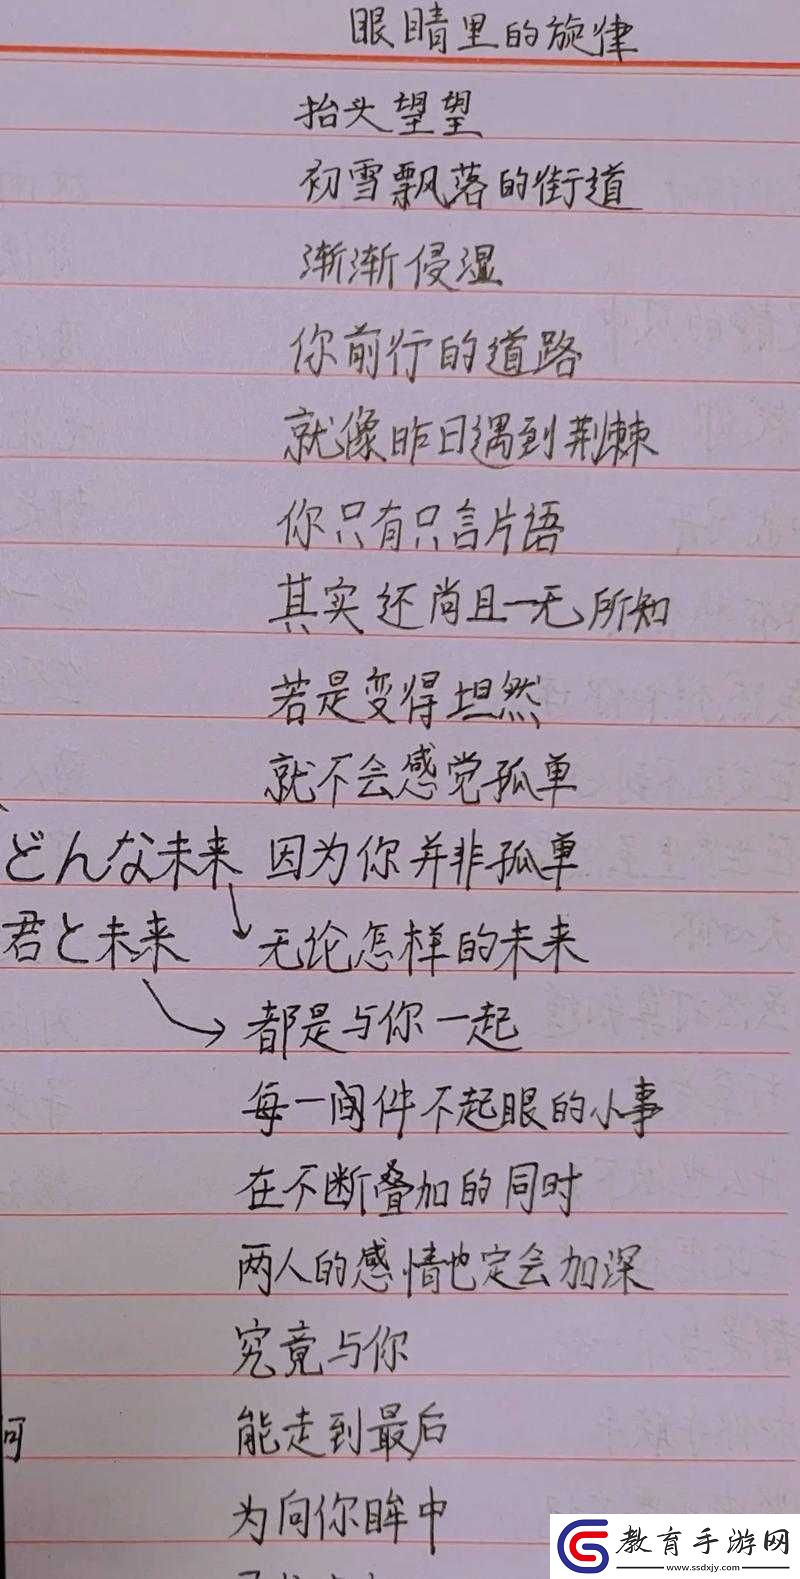 眼睛里的旋律
抬头望望
初雪飘落的街道
渐渐侵湿
你前行的道路
就像昨日遇到荆棘
你只有只言片语
其实还尚且一无所知
若是变得坦然
就不会感觉孤单
どんな未来 因为你并非孤单
君と未来 无论怎样的未来
都是与你一起
每一间件不起眼的小事
在不断叠加的同时
两人的感情也定会加深
究竟与你
能走到最后
为向你眸中
教育手游网
www.ssdxjy.com